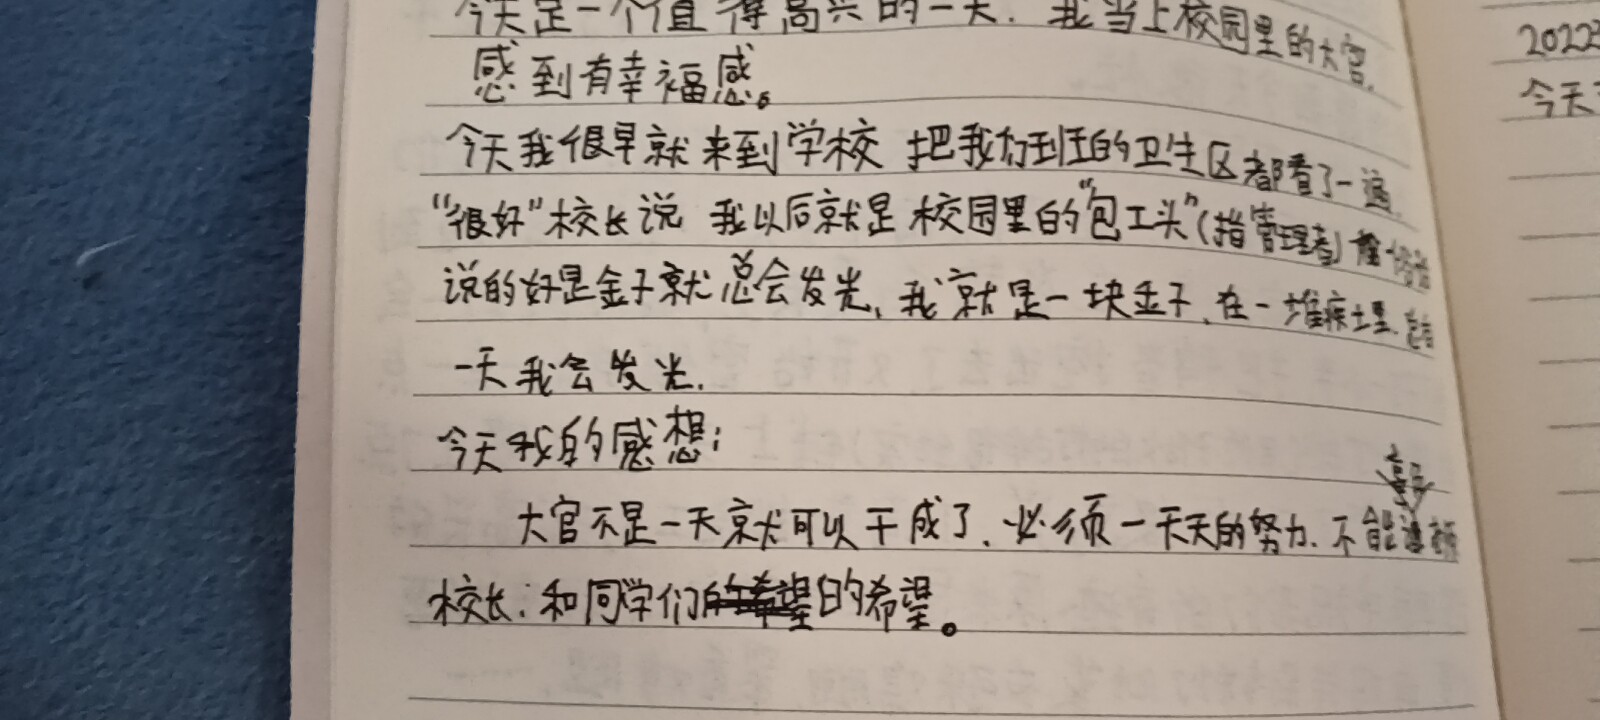 今天是一个值得高兴的一天. 我当上校园里的大官,
感到有幸福感。
今天我很早就来到学校 把我们班的卫生区都看了一遍.
“很好”校长说 我以后就是校园里的“包工头”(指管理者)
说的好是金子就总会发光, 我就是一块金子, 在一堆土里. 总有
一天我会发光.
今天我的感想:
大官不是一天就可以干成了、必须一天天的努力. 不能辜
校长: 和同学们的希望。
2022
今天